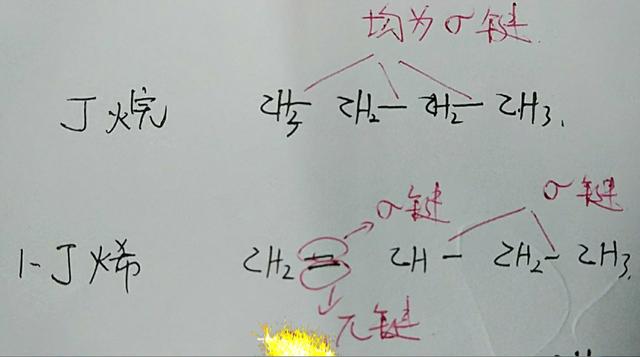 均为σ键
丁烷 CH3- CH2- CH2- CH3.
σ键 σ键
1-丁烯 CH2= CH- CH2- CH3.
π键